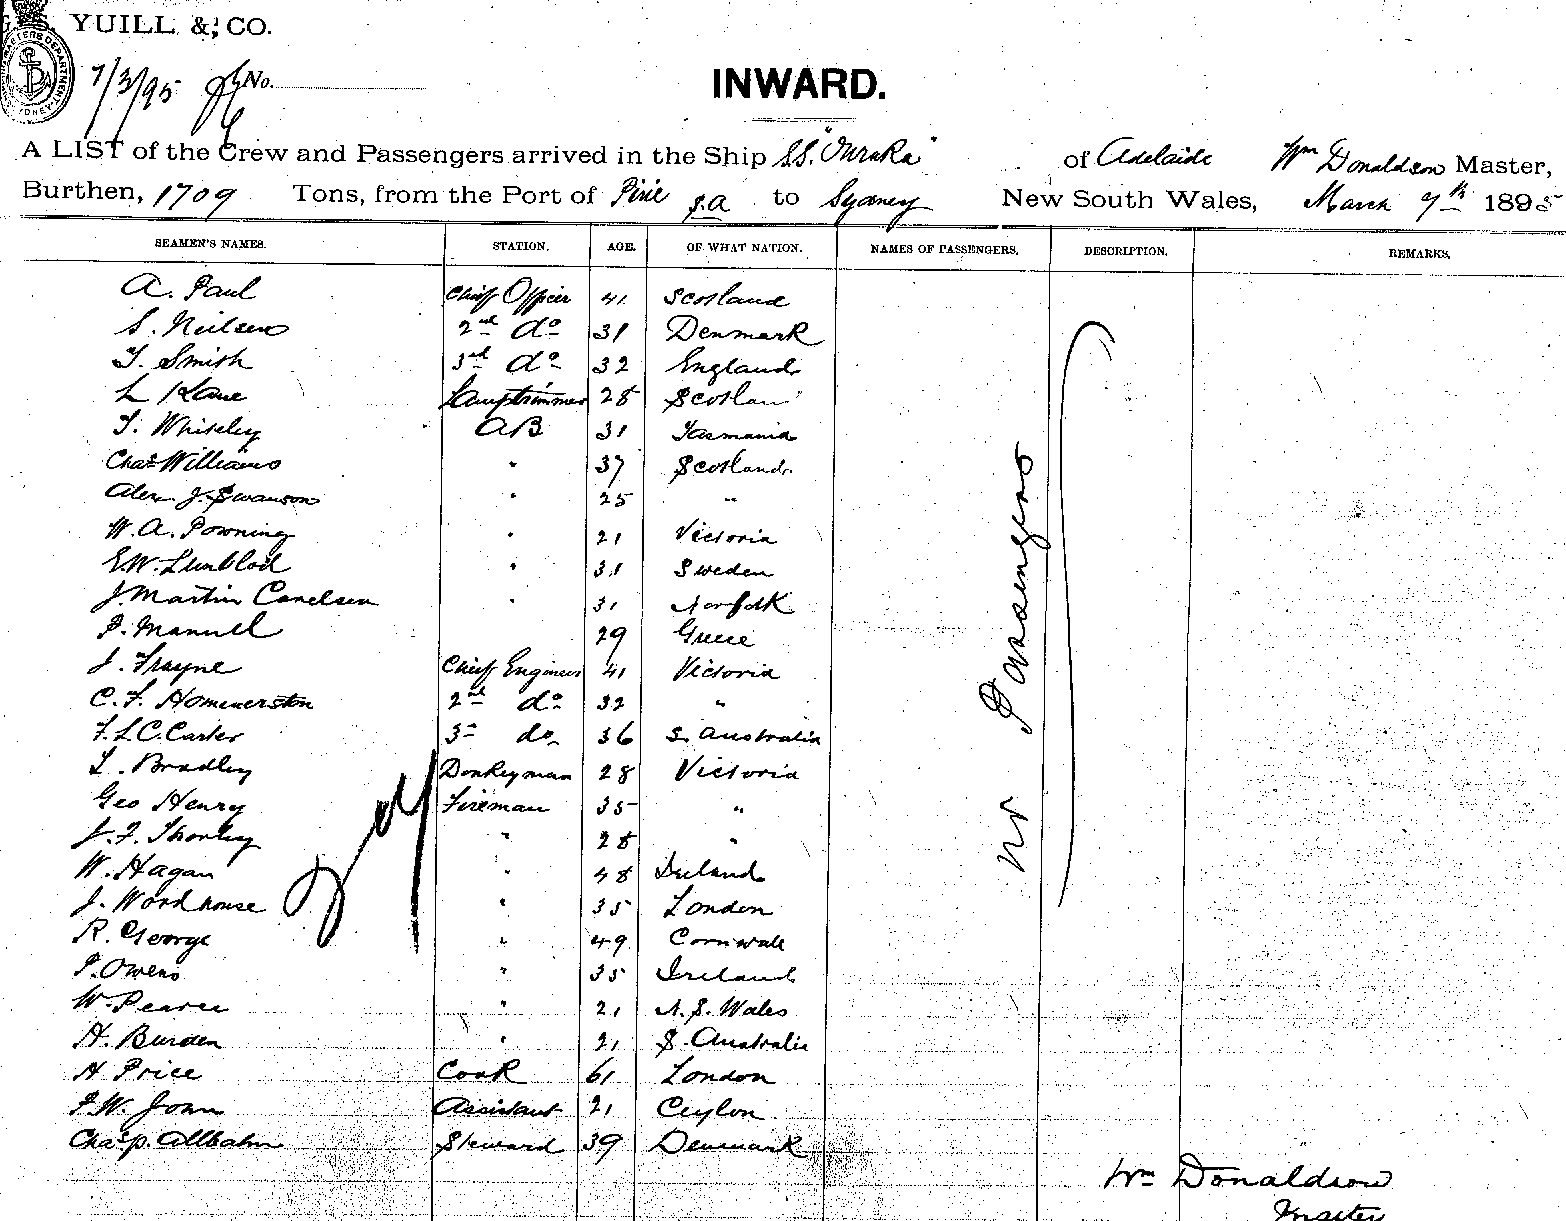 YUILL & CO.
7/3/95 No.
INWARD.
A LIST of the Crew and Passengers arrived in the Ship SS. "Ouraka" of Adelaide Wm Donaldson Master,
Burthen, 1709 Tons, from the Port of Pirie S.A to Sydney New South Wales, March 7th 1895
SEAMEN'S NAMES. STATION. AGE. OF WHAT NATION. NAMES OF PASSENGERS. DESCRIPTION. REMARKS.
A. Paul Chief Officer 41 Scotland
S. Neilsen 2nd do 31 Denmark
T. Smith 3rd do 32 England
L Kane Lamptrimmer 28 Scotlan
T. Whiteley AB 31 Tasmania
Chas Williams " 37 Scotland
Alex. J. Swanson " 25 "
W. A. Powning " 21 Victoria
E.W. Lunblod " 31 Sweden
J. Martin Canelsen " 31 Norfolk
P. Manuell 29 Greece
J. Frayne Chief Engineer 41 Victoria
C. F. Homewerston 2nd do 32 "
F. L. C. Carter 3rd do 36 S. Australia
L. Bradley Donkeyman 28 Victoria
Geo Henry Fireman 35 "
J. F. Thorley " 28 "
W. Hagan " 48 Ireland
J. Woodhouse " 35 London
R. George " 49 Cornwall
P. Owens " 35 Ireland
W. Pearce " 21 N. S. Wales
H. Burden " 21 S. Australia
H Price Cook 61 London
P. W. John Assistant 21 Ceylon
Chas. p. Allbahn Steward 39 Denmark
No Passengers
Wm Donaldson
Master